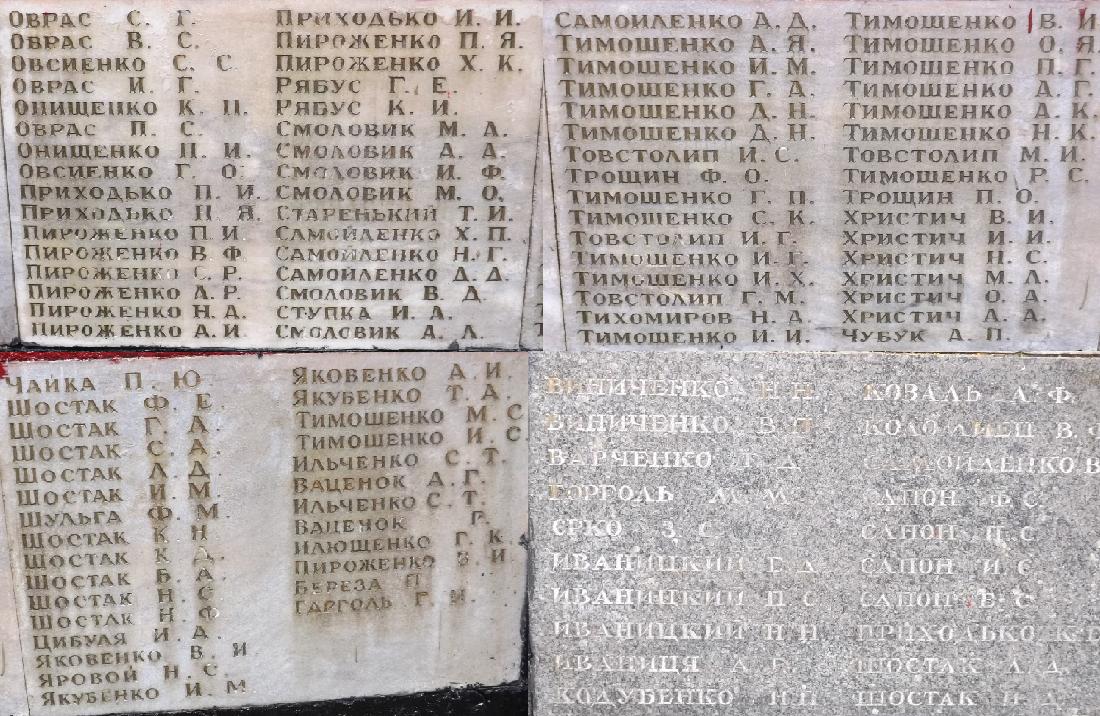 ОВРАС С. Г.
ОВРАС В. С.
ОВСИЕНКО С. С.
ОВРАС И. Г.
ОНИЩЕНКО К. П.
ОВРАС П. С.
ОНИЩЕНКО П. И.
ОВСИЕНКО Г. О.
ПРИХОДЬКО П. И.
ПРИХОДЬКО Н. Я.
ПИРОЖЕНКО П. И.
ПИРОЖЕНКО В. Ф.
ПИРОЖЕНКО С. Р.
ПИРОЖЕНКО А. Р.
ПИРОЖЕНКО Н. А.
ПИРОЖЕНКО А. И.
ПРИХОДЬКО И. И.
ПИРОЖЕНКО П. Я.
ПИРОЖЕНКО Х. К.
РЯБУС Г. Е.
РЯБУС К. И.
СМОЛОВИК М. А.
СМОЛОВИК А. А.
СМОЛОВИК И. Ф.
СМОЛОВИК М. О.
СТАРЕНЬКИЙ Т. И.
САМОЙЛЕНКО Х. П.
САМОЙЛЕНКО Н. Г.
САМОЙЛЕНКО Д. Д.
СМОЛОВИК В. Д.
СТУПКА И. А.
СМОЛОВИК А. Л.
САМОЙЛЕНКО А. Д.
ТИМОШЕНКО А. Я.
ТИМОШЕНКО И. М.
ТИМОШЕНКО Г. А.
ТИМОШЕНКО Д. Н.
ТИМОШЕНКО Д. Н.
ТОВСТОЛИП И. С.
ТРОЩИН Ф. О.
ТИМОШЕНКО Г. П.
ТИМОШЕНКО С. К.
ТОВСТОЛИП И. Г.
ТИМОШЕНКО И. Г.
ТИМОШЕНКО И. Х.
ТОВСТОЛИП Г. М.
ТИХОМИРОВ Н. А.
ТИМОШЕНКО И. И.
ТИМОШЕНКО В. И
ТИМОШЕНКО О. Я.
ТИМОШЕНКО П. Г.
ТИМОШЕНКО А. Г.
ТИМОШЕНКО А. К.
ТИМОШЕНКО Н. К.
ТОВСТОЛИП М. И.
ТИМОШЕНКО Р. С.
ТРОЩИН П. О.
ХРИСТИЧ В. И.
ХРИСТИЧ И. И.
ХРИСТИЧ Н. С.
ХРИСТИЧ М. Л.
ХРИСТИЧ О. А.
ХРИСТИЧ А. А.
ЧУБУК А. П.
ЧАЙКА П. Ю.
ШОСТАК Ф. Е.
ШОСТАК Г. А.
ШОСТАК С. А.
ШОСТАК Л. Д.
ШОСТАК И. М.
ШУЛЬГА Ф. М.
ШОСТАК К. Н.
ШОСТАК К. Д.
ШОСТАК Б. А.
ШОСТАК Н. С.
ШОСТАК Н. Ф.
ЦИБУЛЯ И. А.
ЯКОВЕНКО В. И
ЯРОВОЙ Н. С.
ЯКУБЕНКО И. М
ЯКОВЕНКО А. И.
ЯКУБЕНКО Т. А.
ТИМОШЕНКО М. С
ТИМОШЕНКО И. С.
ИЛЬЧЕНКО С. Т.
ВАЦЕНОК А. Г.
ИЛЬЧЕНКО С. Т.
ВАЦЕНОК Г.
ИЛЮЩЕНКО Г. К.
ПИРОЖЕНКО И
БЕРЕЗА П
ГАРГОЛЬ Г. М.
ВИНИЧЕНКО Н. Н.
ВИНИЧЕНКО В. П
ВАРЧЕНКО
ГОРГОЛЬ М.
ЕРКО З. С
ИВАНИЦКИЙ
ИВАНИЦКИЙ П. С
ИВАНИЦКИЙ Н. Н.
ИВАНИЦЯ А.
КОДУБЕНКО
КОВАЛЬ А. Ф.
КОЛОМИЕЦ В. Ф
САМОЙЛЕНКО В
САПОН Ф. С.
САПОН П. С
САПОН И. С
САПОН В. С
ПРИХОДЬКО К
ШОСТАК А. Д.
ШОСТАК